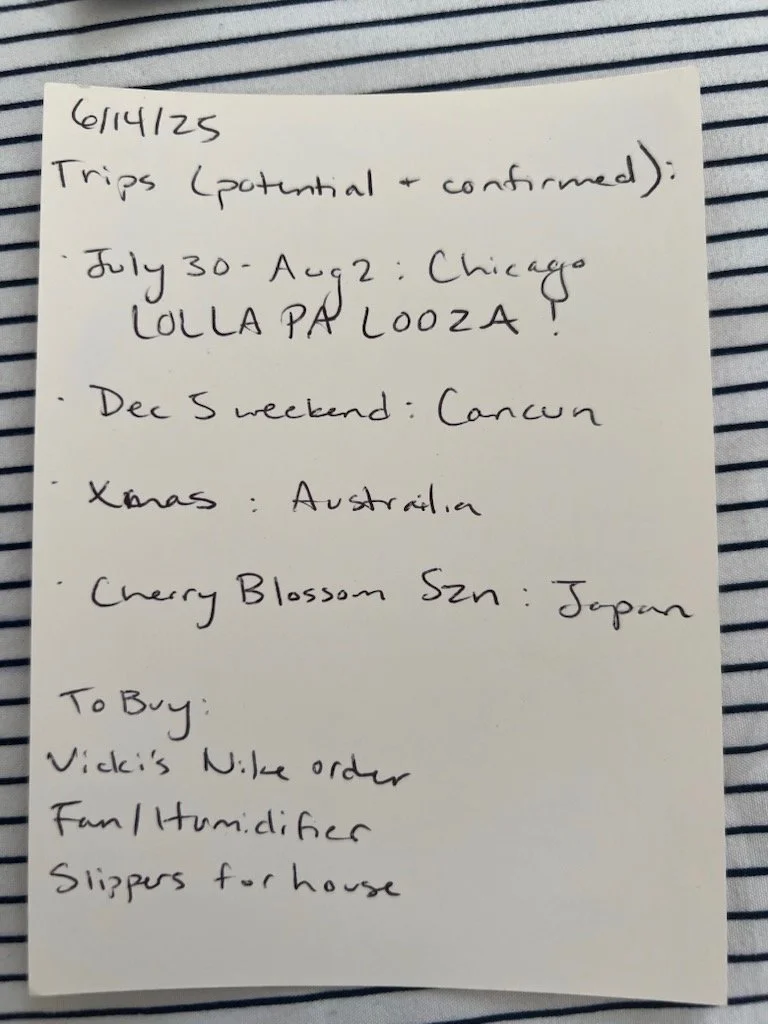 6/14/25
Trips (potential + confirmed):
· July 30 - Aug 2 : Chicago
LOLLA PA LOOZA !
· Dec 5 weekend : Cancun
· Xmas : Austrailia
· Cherry Blossom Szn : Japan
To Buy:
Vicki's Nike order
Fan/Humidifier
Slippers for house